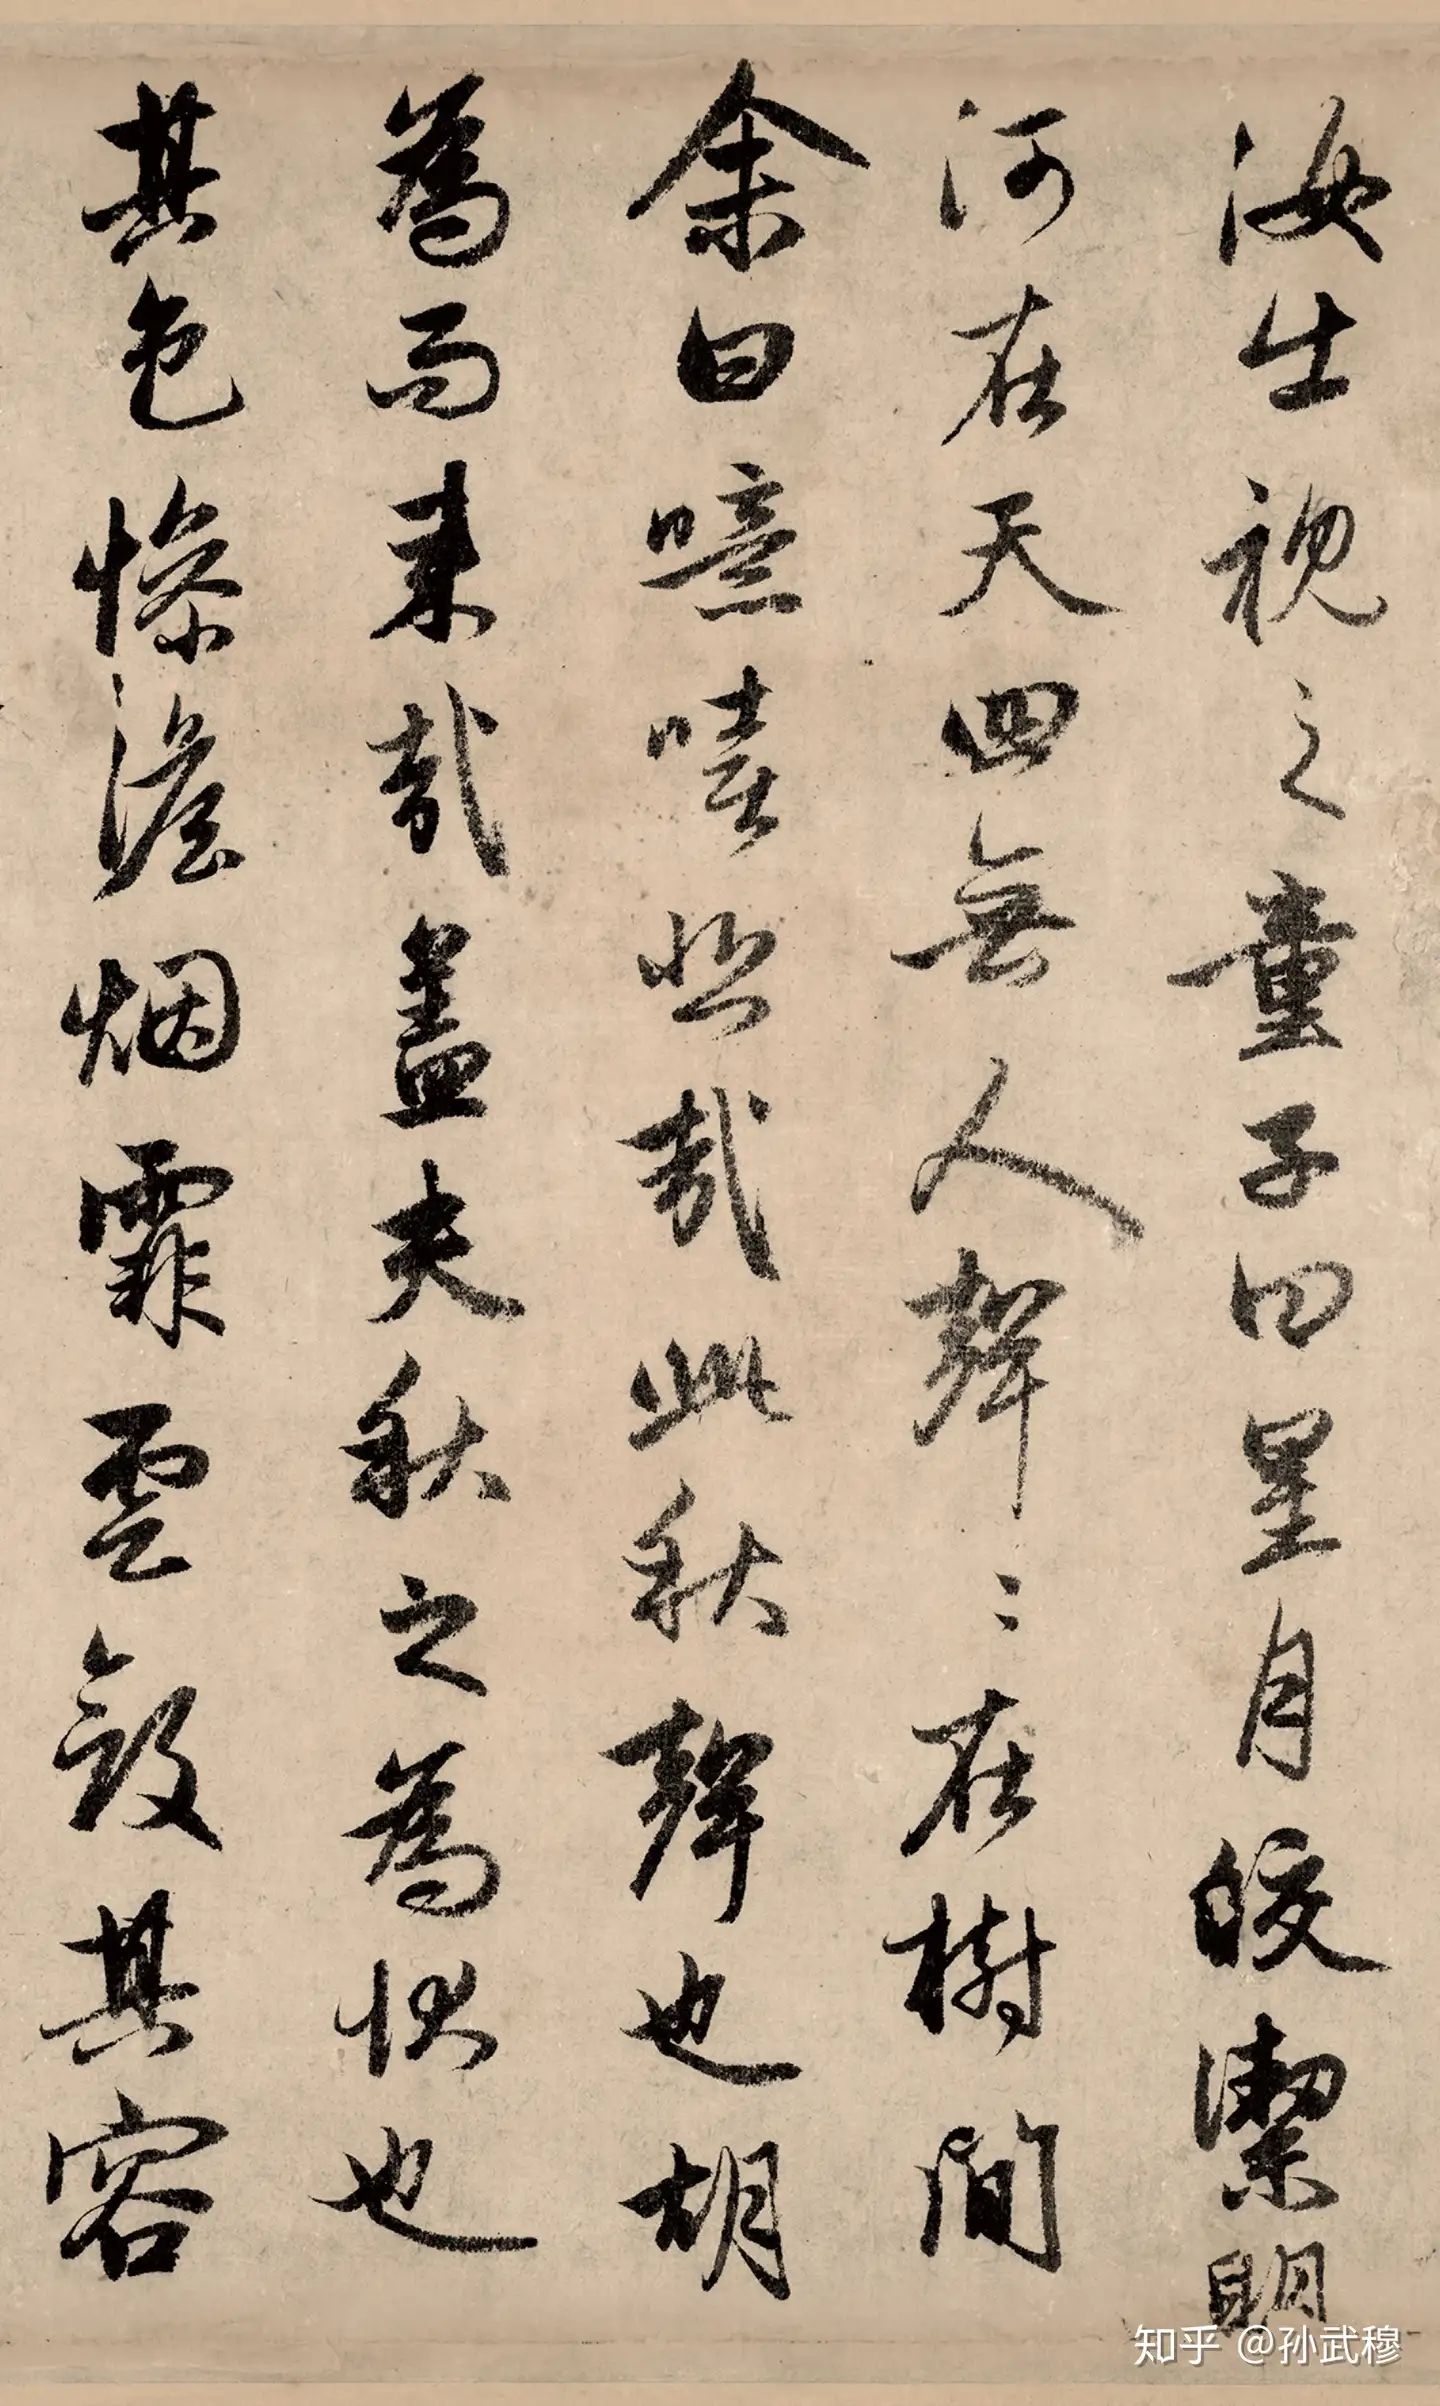 汝出視之童子曰星月皎潔明
河在天四無人聲〻在樹間
余曰噫嘻悲哉此秋聲也胡
為而来哉盖夫秋之為状也
其色惨澹烟霏雲斂其容
知乎 @孙武穆